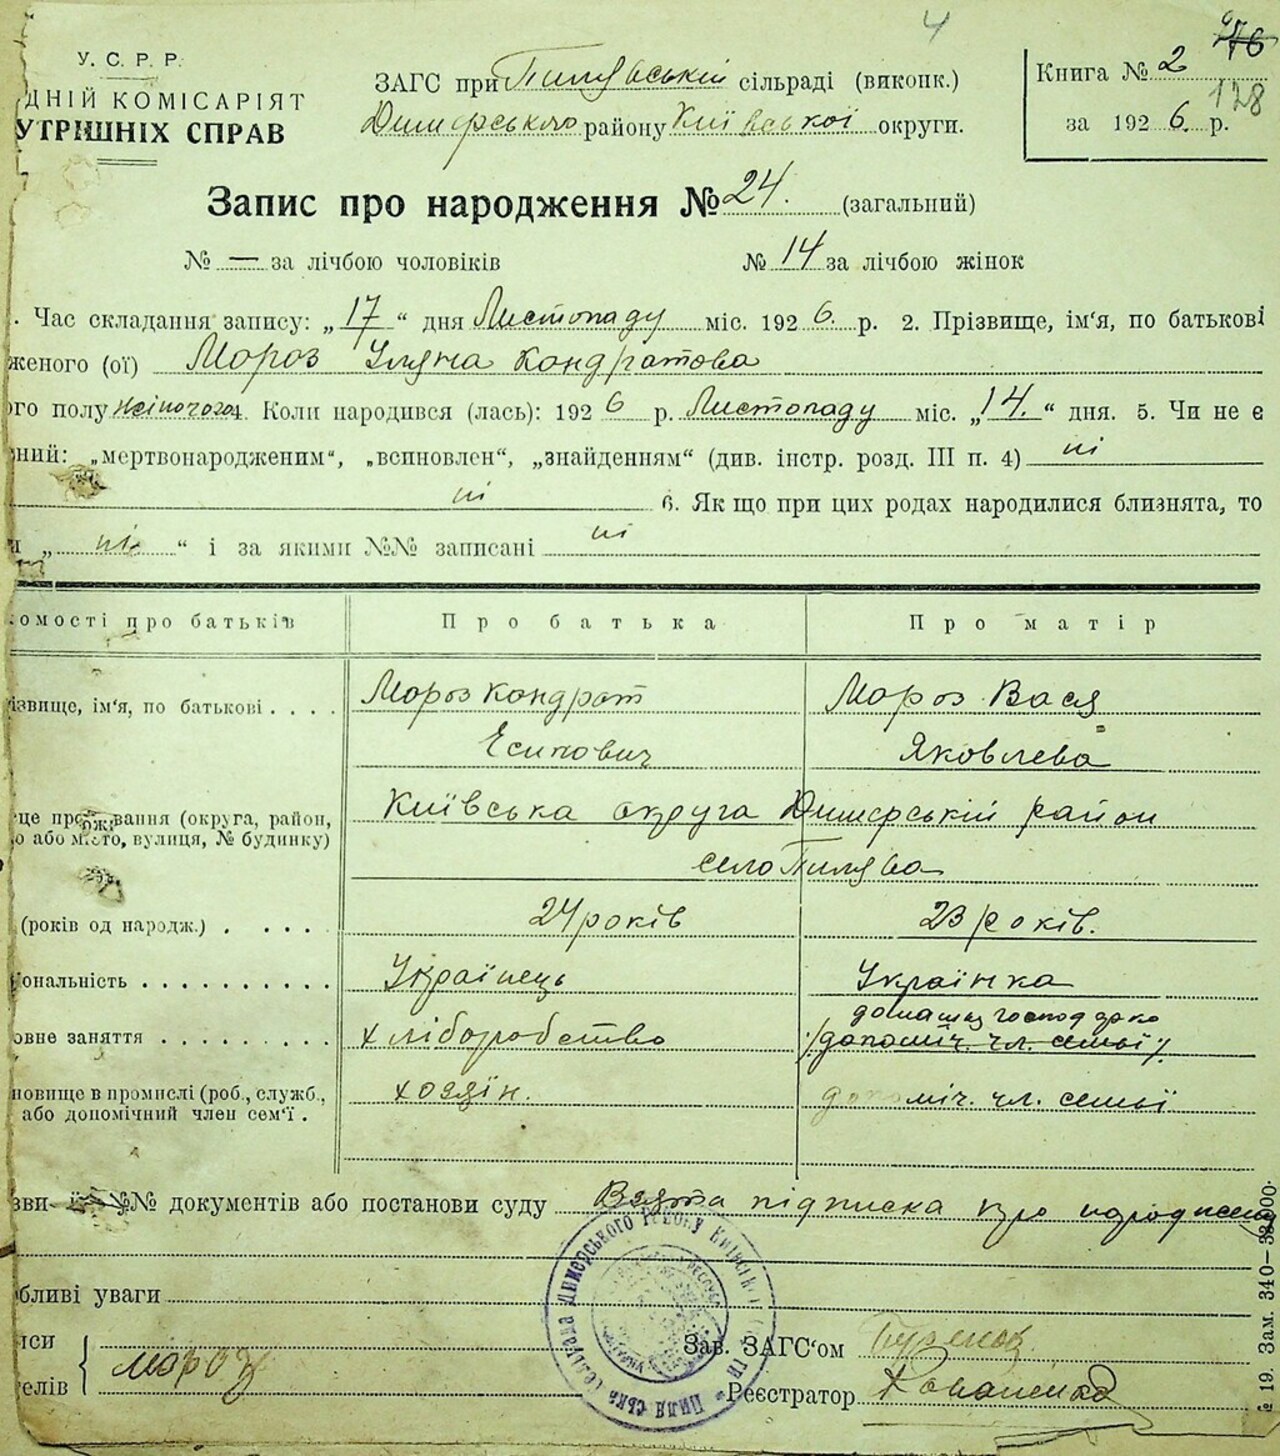 4
276
128
У. С. Р. Р.
ДНІЙ КОМІСАРІЯТ
УТРІШНІХ СПРАВ
ЗАГС при Пилявській сільраді (виконк.)
Димерського району Київської округи.
Книга № 2
за 1926. р.
Запис про народження № 24. (загальний)
№ — за лічбою чоловіків № 14 за лічбою жінок
. Час складання запису: „17“ дня Листопаду міс. 1926. р. 2. Прізвище, ім'я, по батькові
женого (ої) Мороз Уляна Кондратова
ого полу жіночого 4. Коли народився (лась): 1926 р. Листопаду міс. „14.“ дня. 5. Чи не є
ний: „мертвонародженим“, „всиновлен“, „знайденням“ (див. інстр. розд. III п. 4) ні
ні 6. Як що при цих родах народилися близнята, то
и „ні“ і за якими №№ записані ні
омості про батьків Про батька Про матір
ізвище, ім'я, по батькові . . . . Мороз Кондрат Мороз Вася
Есипович Яковлева
це прожи вання (округа, район, Київська округа Димерській район
о або місто, вулиця, № будинку)
село Пилява
(років од народж.) . . . . . 24 років 23 років.
ональність . . . . . . . . . . Українець Українка
домашнє господарко
овне заняття . . . . . . . . . хліборобство /допоміч. чл. семьї/
новище в промислі (роб., служб., хозяїн. допоміч. чл. семьї
або допомічний член сем'ї .
зви №№ документів або постанови суду Взята підписка про народження
бливі уваги
иси
елів } Мороз
Зав. ЗАГС'ом
Реєстратор
№ 19. Зам. 340—33000.